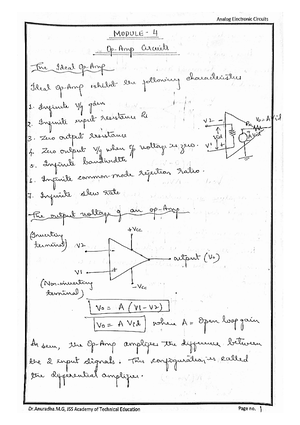 Analog Electronic Circuits
MODULE - 4
Op-Amp Circuits
The Ideal Op-Amp
Ideal Op-Amp exhibit the following characteristics
1. Infinite V/g gain
2. Infinite input resistance Ri
3. Zero output resistance
4. Zero output V/g when i/p voltage is zero.
5. Infinite bandwidth
6. Infinite common-mode rejection ratio.
7. Infinite slew rate
V2
V1
Ro
The output voltage of an op-Amp
(Inverting
terminal)
V2
+Vcc
output (Vo)
V1
(Non-inverting
terminal)
-Vcc
Vo = A (V1-V2)
Vo = A Vid where A = Open loop gain
As seen, the Op-Amp amplifies the difference between
the 2 input signals. This configuration is called
the differential amplifier.
Dr.Anuradha.M.G, JSS Academy of Technical Education
Page no. 1